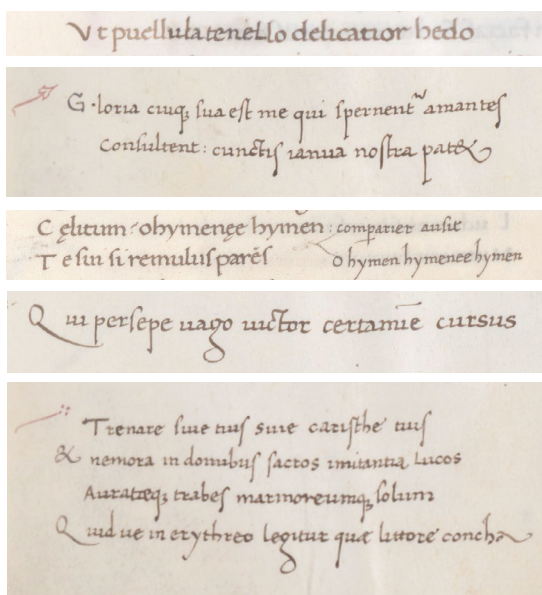 Ut puellula tenello delicatior hedo
G·loria cuiq; sua est me qui spernent᷑ amantes
Consultent: cunctis ianua nostra pat&
Cęlitum ohymenęe hymen: comparier ausit
Te suis si remulus parēs O hymen hymenee hymen
Qui persepe uago uictor certamīe cursus
Trenare siue tuis siue caristhe tuis
& nemora in domibus sacros imitantia lucos
Aurateq; trabes marmoreumq; solum
Quid ue in erythreo legitur quæ littore concha